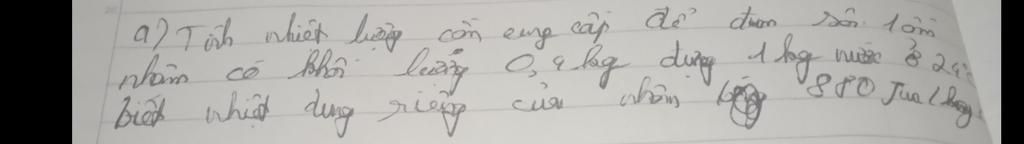 a) Tính nhiệt lượng cần cung cấp để đun sôi 1 ấm
nhôm có khối lượng 0,4 kg đựng 1 kg nước ở 24°
biết nhiệt dung riêng của nhôm 880 Jun/kg